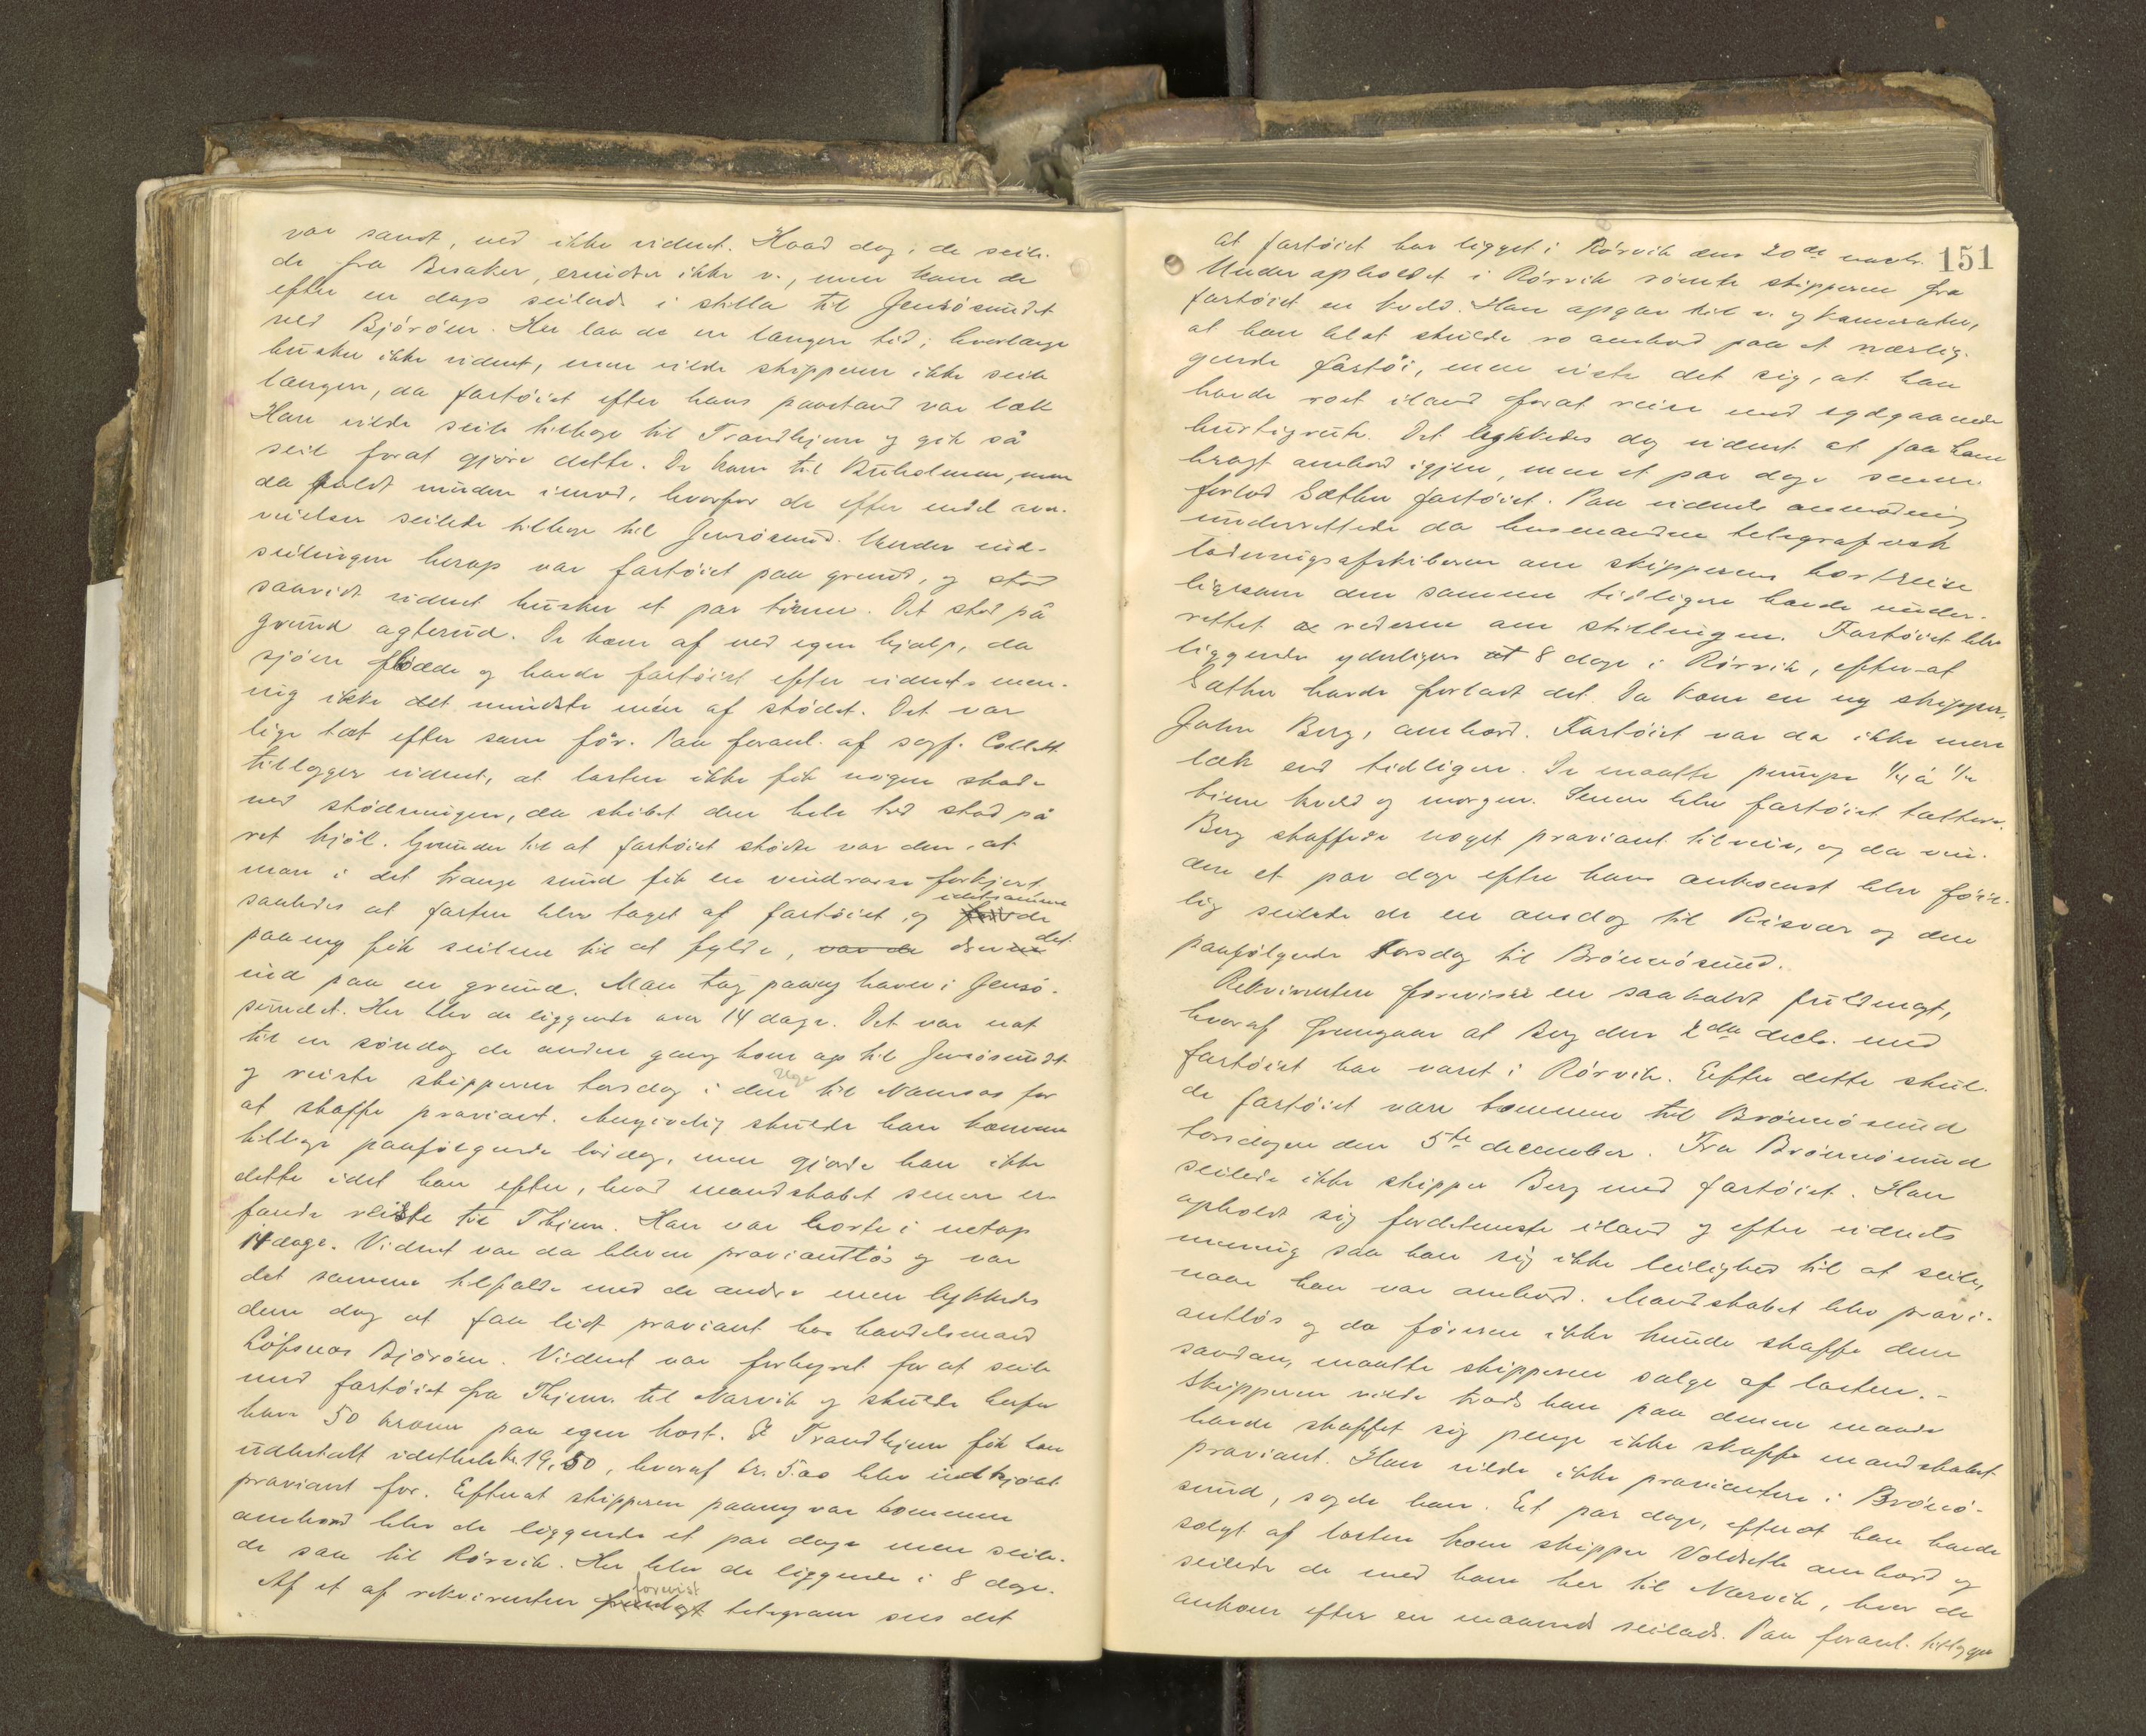 var sandt, ved ikke vidnet. Hvad dag, de seile-
de fra Besaker, erindrer ikke v., men kom de
efter en dags seilads i stilla til Jensösundet
ved Björöen. Her laa de en længere tid; hvorlænge
husker ikke vidnet, men vilde skipperen ikke seile
længer, da fartöiet efter hans paastand var læk
Han vilde seile tilbage til Trondhjem og gik så
seil forat gjöre dette. De kom til Buholmen, men
da fuldt vinden imod, hvorfor de efter endel
seilede tilbage til Jensösund. Under ind-
seilingen herop var fartöiet paa grund, og stod
saavidt vidnet husker et par timer. Det stod på
grund agterud. De kom af ved egen hjælp, da
sjöen flödde og havde fartöiet efter vidnets men-
ing ikke det mindste mén af stödet. Det var
lige tæt efter som för. Paa foranl. af sagf. Collett
tillægger vidnet, at lasten ikke fik nogen skade
ved stödningen, da skibet den hele tid stod på
ret kjöl. Grunden til at fartöiet stödte var den, at
man i det trange sund fik en vindrosse forkjert
saaledes at farten blev taget af fartöiet, og idetsamme de
paany fik seilene til at fylde, drev det
ind paa en grund. Man tog paany havn i Jensö-
sundet. Her blev de liggende over 14 dage. Det var nat
til en söndag de anden gang kom op til Jensösundet
og reiste skipperen torsdag i den uge til Namsos for
at skaffe proviant. Angivelig skulde han komme
tilbage paafölgende lördag, men gjorde han ikke
dette idet han efter, hvad mandskabet senere er-
farede reiste til Thjem. Han var borte i netop
14 dage. Vidnet var da bleven proviantlös og var
det samme tilfælde med de andre men lykkedes
dem dog at faa lidt proviant hos handelsmand
Löfsnæs Björöen. Vidnet var forhyret for at seile
med fartöiet fra Thjem til Narvik og skulde herfor
have 50 kroner paa egen kost. I Trondhjem fik han
udbetalt idethele kr. 19,50, hvoraf kr. 5.00 blev indkjöbt
proviant for. Efterat skipperen paany var kommen
ombord blev de liggende et par dage men seile-
de saa til Rörvik. Her blev de liggende i 8 dage.
Af et af rekvirenten forevist telegram sees det
151
at fartöiet har ligget i Rörvik den 20de novbr.
Under opholdet i Rörvik römte skipperen fra
fartöiet en kveld. Han opgav til v. og kamerater,
at han blot skulde ro ombord paa et nærlig-
gende fartöi, men viste det sig, at han
havde roet iland forat reise med sydgaaende
hurtigrute. Det lykkedes dog vidnet at faa ham
bragt ombord igjen, men et par dage senere
forlod Sæther fartöiet. Paa vidnets anmodning
underrettede da lensmanden telegrafisk
ladningsafskiberen om skipperens bortreise
ligesom den samme tidligere havde under-
rettet rederen om stillingen. Fartöiet blev
liggende yderligere 8 dage i Rörvik, efter at
Sæther havde forladt det. Da kom en ny skipper,
John Berg, ombord. Fartöiet var da ikke mere
læk end tidligere. De maatte pumpe 1/4 à 1/2
time kveld og morgen. Senere blev fartöiet tættere.
Berg skaffede noget proviant tilveie, og da vin-
den et par dage efter hans ankomst blev föie-
lig seilede de en onsdag til Risvær og den
paafölgende torsdag til Brönnösund.
Rekvirenten foreviser en saakaldt fuldmagt,
hvoraf fremgaar at Berg den 2den decbr. med
fartöiet har været i Rörvik. Efter dette skul-
de fartöiet være kommen til Brönnösund
torsdagen den 5te december. Fra Brönnösund
seilede ikke skipper Berg med fartöiet. Han
opholdt sig fordetmeste iland og efter vidnets
mening saa han sig ikke leilighed til at seile,
naar han var ombord. Mandskabet blev provi-
antlös og da föreren ikke kunde skaffe dem
saadan, maatte skipperen sælge af lasten. -
Skipperen vilde trods han paa denne maade
havde skaffet sig penge ikke skaffe mandskabet
proviant. Han vilde ikke proviantere i Brönö-
sund, sagde han. Et par dage, efterat han havde
solgt af lasten kom skipper Voldseth ombord og
seilede de med ham her til Narvik, hvor de
ankom efter en maaneds seilads. Paa foranl. tillægger